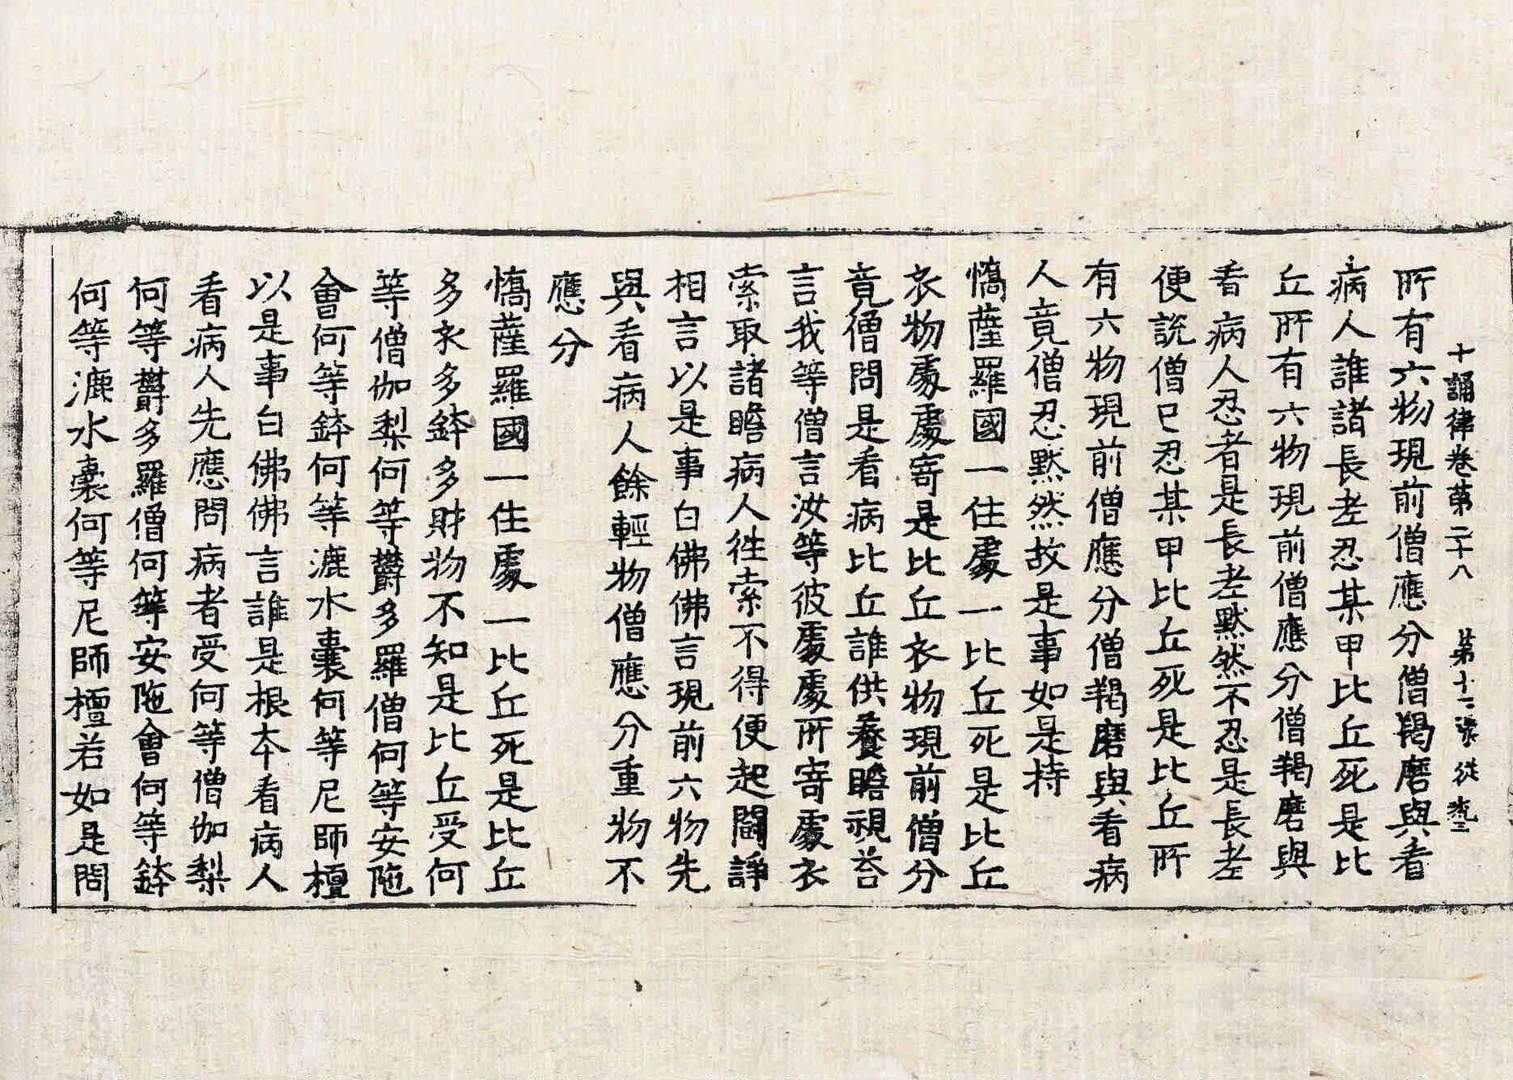 十誦律卷第二十八 第十二張 従
所有六物現前僧應分僧羯磨與看
病人誰諸長老忍某甲比丘死是比
丘所有六物現前僧應分僧羯磨與
看病人忍者是長老默然不忍是長老
便說僧已忍某甲比丘死是比丘所
有六物現前僧應分僧羯磨與看病
人竟僧忍默然故是事如是持
憍薩羅國一住處一比丘死是比丘
衣物處處寄是比丘衣物現前僧分
竟僧問是看病比丘誰供養瞻視荅
言我等僧言汝等彼處處所寄處衣
索取諸瞻病人往索不得便起鬪諍
相言以是事白佛佛言現前六物先
與看病人餘輕物僧應分重物不
應分
憍薩羅國一住處一比丘死是比丘
多衣多鉢多財物不知是比丘受何
等僧伽梨何等欝多羅僧何等安陁
會何等鉢何等漉水囊何等尼師檀
以是事白佛佛言誰是根本看病人
看病人先應問病者受何等僧伽梨
何等欝多羅僧何等安陁會何等鉢
何等漉水囊何等尼師檀若如是問